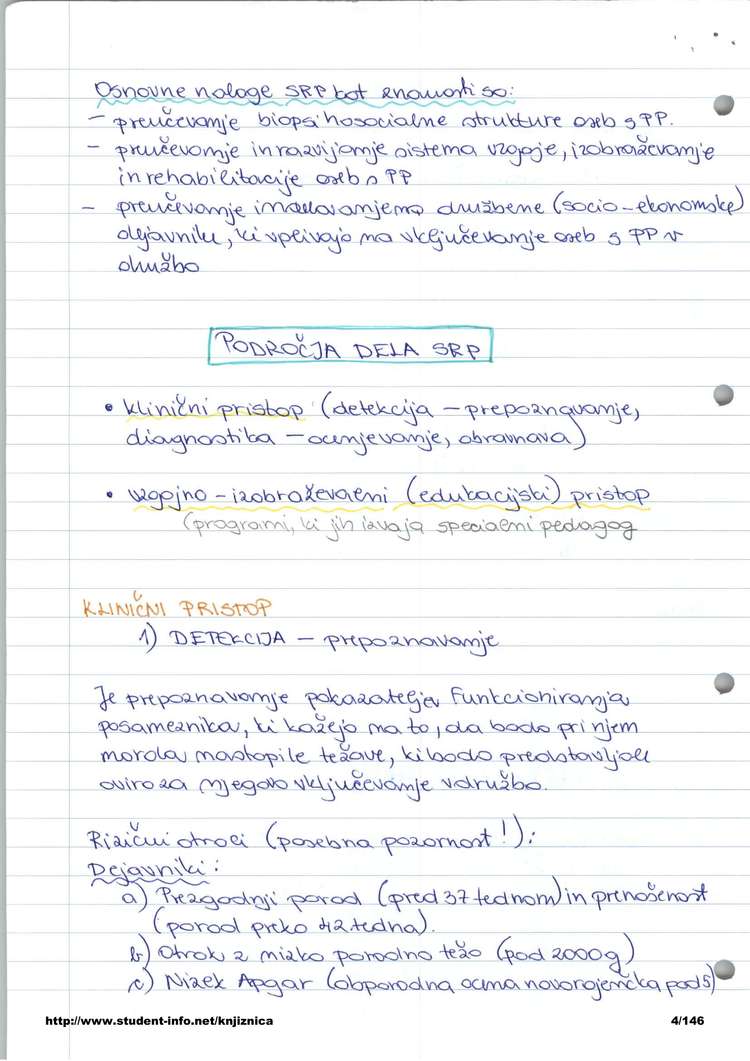 Osnovne naloge SRP kot znanosti so:
- preučevanje biopsihosocialne strukture oseb s PP.
- preučevanje in razvijanje sistema vzgoje, izobraževanje
in rehabilitacije oseb s PP
- preučevanje družbene (socio-ekonomske)
dejavnike, ki vplivajo na vključevanje oseb s PP v
družbo
PODROČJA DELA SRP
• klinični pristop (detekcija - prepoznavanje,
diagnostika - ocenjevanje, obravnava)
• vzgojno - izobraževalni (edukacijski) pristop
(programi, ki jih izvaja specialni pedagog
KLINIČNI PRISTOP
1) DETEKCIJA - prepoznavanje
Je prepoznavanje pokazatelja funkcioniranja
posameznika, ki kažejo na to, da bodo pri njem
morda nastopile težave, ki bodo predstavljale
oviro za njegovo vključevanje v družbo.
Rizični otroci (posebna pozornost!):
Dejavniki:
a) Prezgodnji porod (pred 37 tednom) in prenošenost
(porod preko 42 tedna).
b) Otrok z nizko porodno težo (pod 2000g)
c) Nizek Apgar (obporodna ocena novorojenčka pod 5)
http://www.student-info.net/knjiznica
4/146